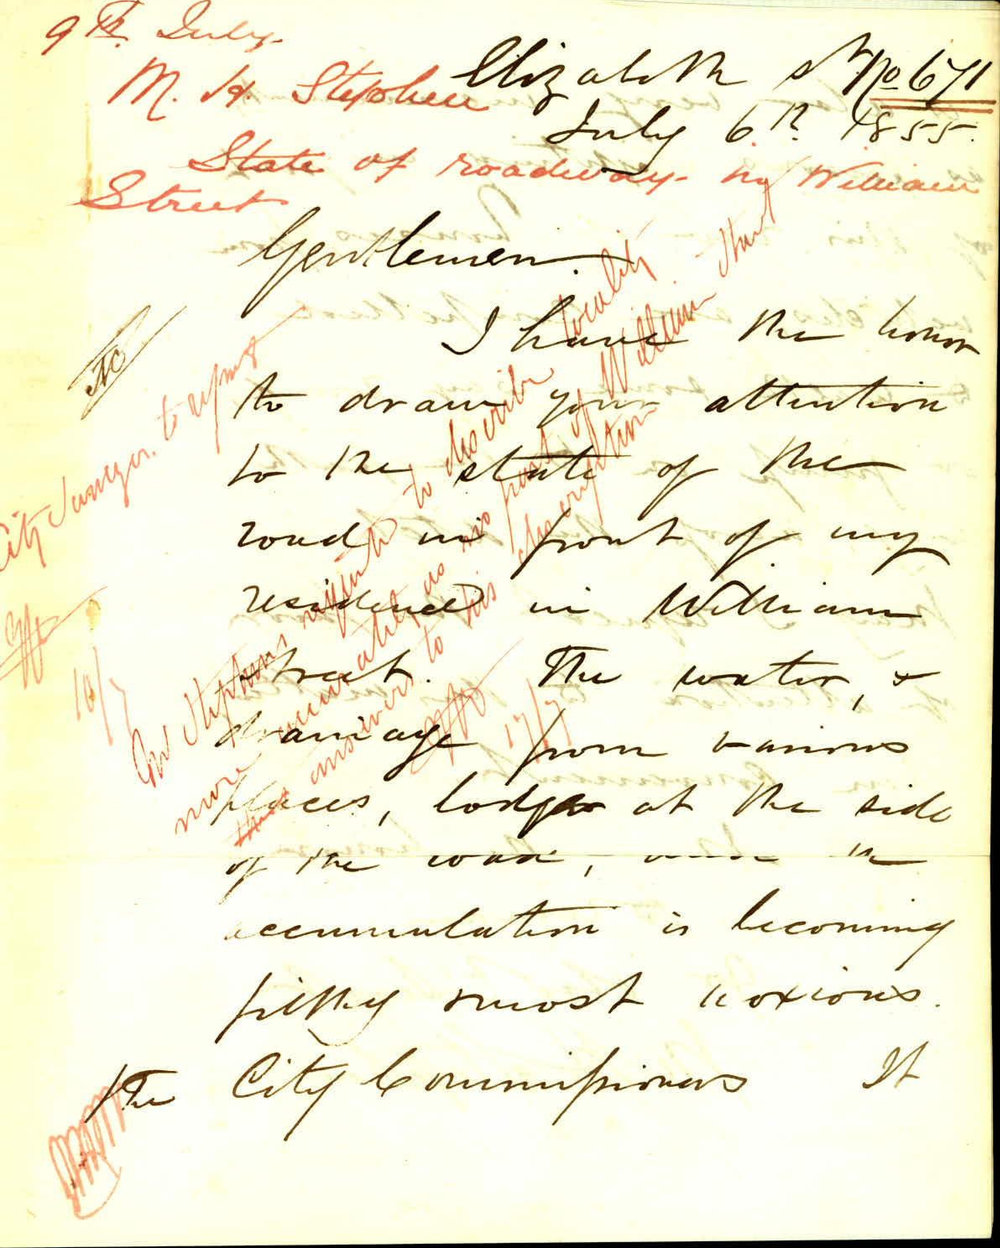 9th July
M. H. Stephen
State of roadway in William
Street
Elizabeth St No 671
July 6th 1855.
Gentlemen.
I have the honor
to draw your attention
to the state of the
road in front of my
residence in William
street. The water, &
drainage from various
places, lodge at the side
of the road, and the
accumulation is becoming
filthy & most noxious.
The City Commissioners It
City Surveyor to report
10/7
Mr Stephens request to describe locality
more minutely, as no part of William Street
this answers to his description
17/7